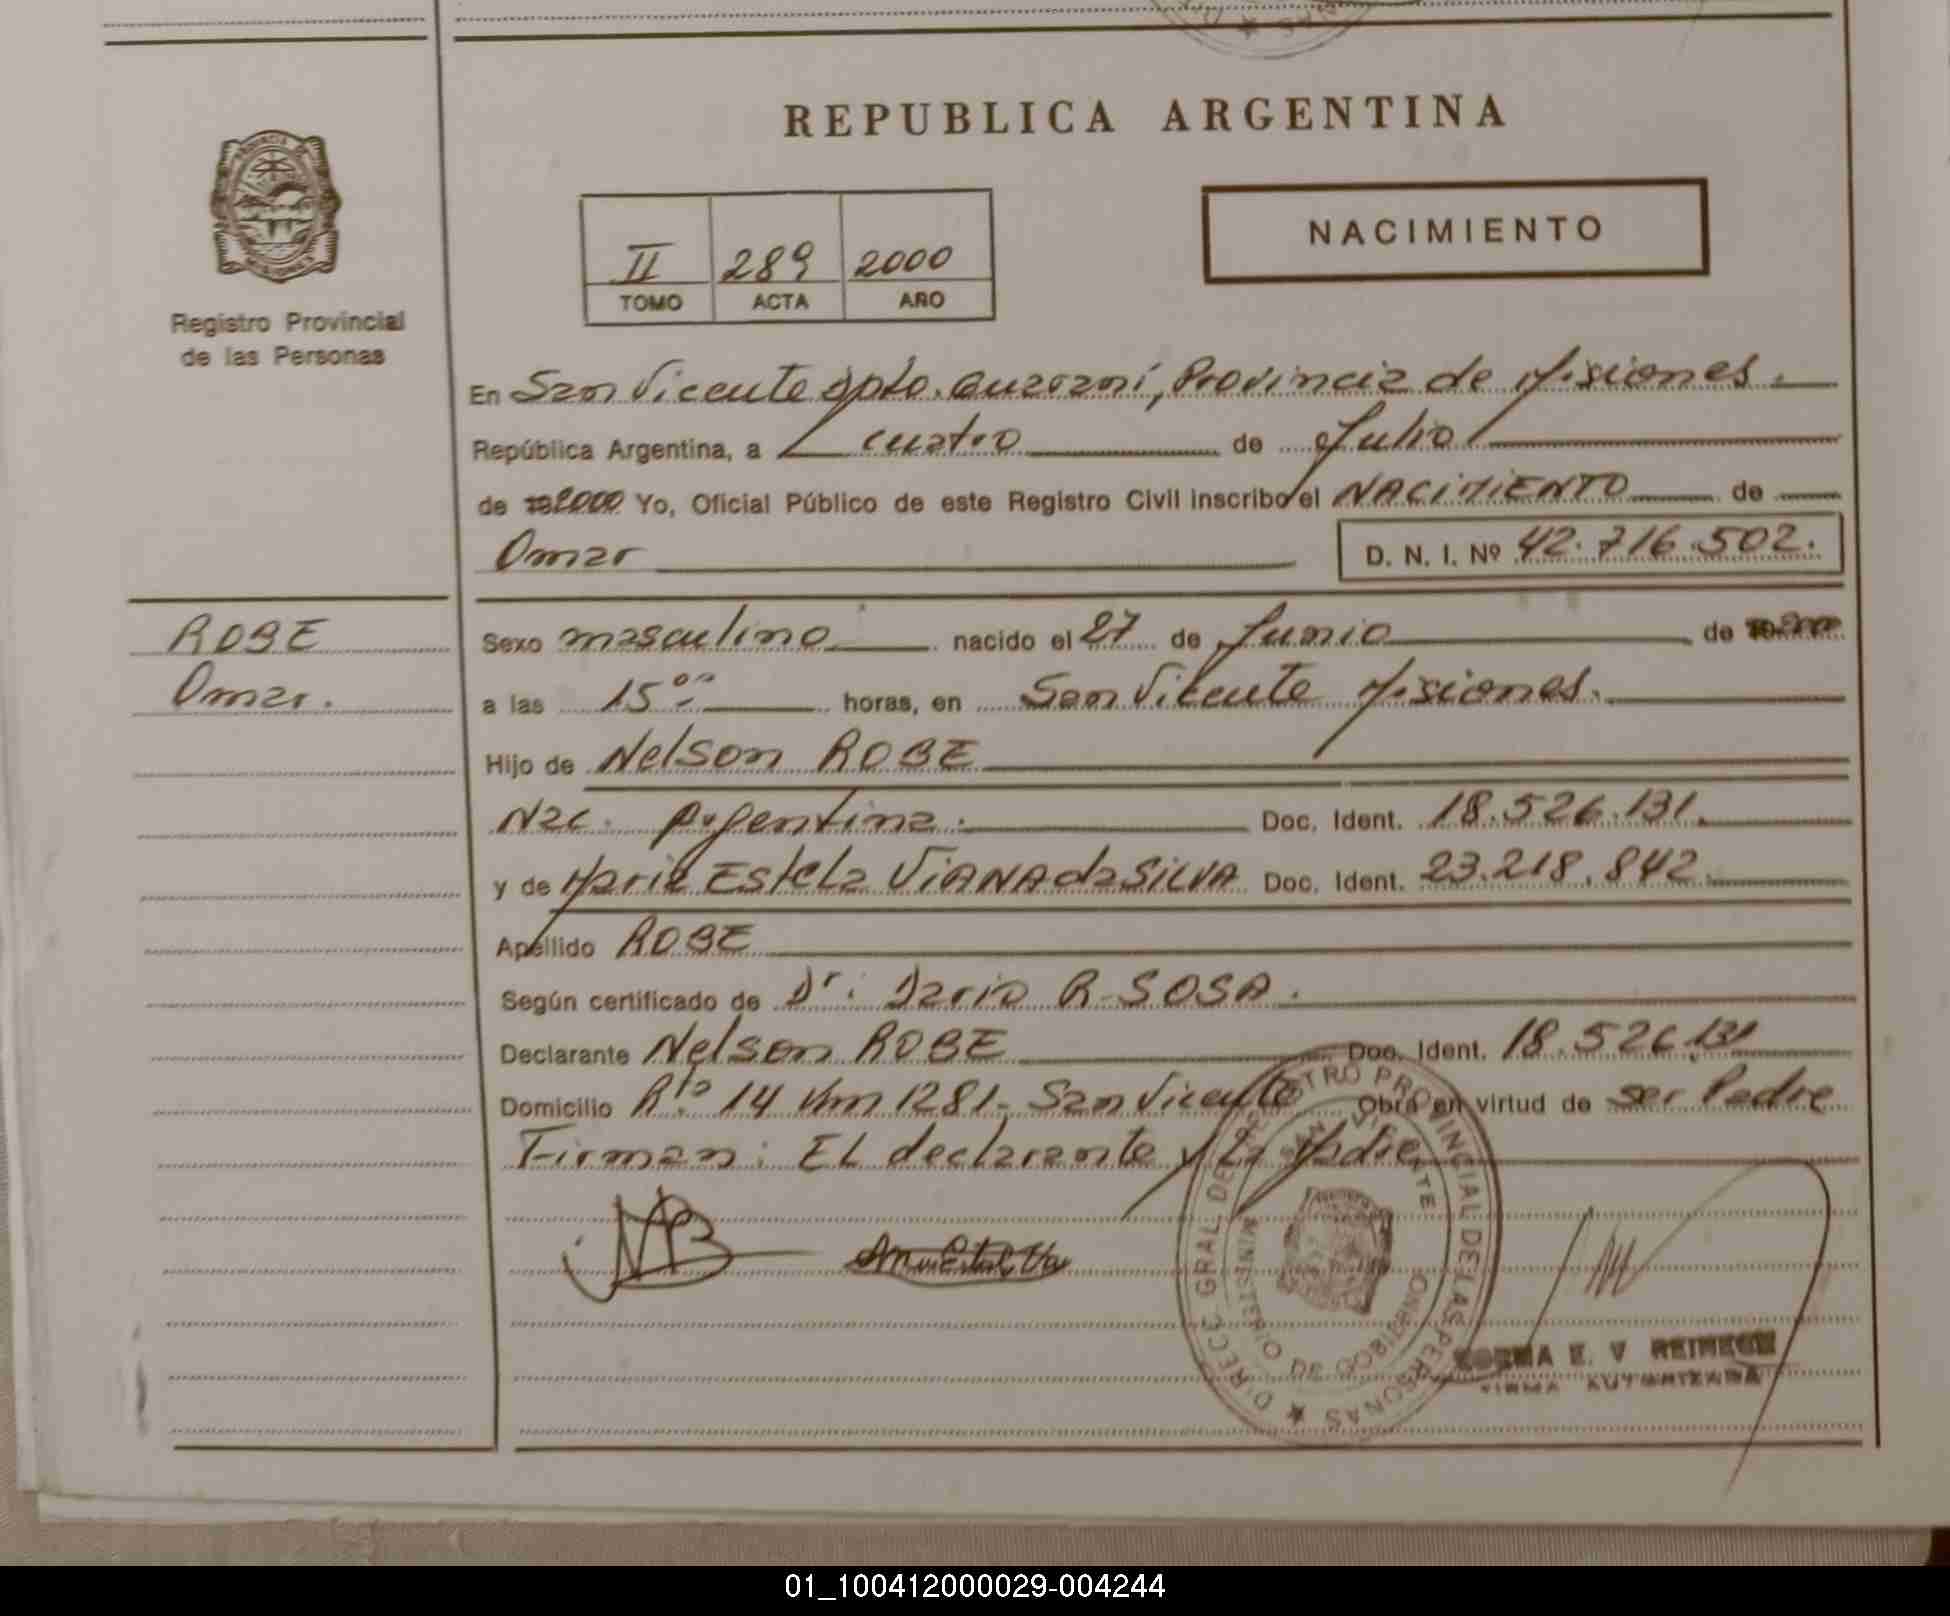 REPUBLICA ARGENTINA
NACIMIENTO
II 289 2000
TOMO ACTA AÑO
Registro Provincial
de las Personas
En San Vicente Dpto. Guaraní, Provincia de Misiones.
República Argentina, a cuatro de Julio
de 2000 Yo, Oficial Público de este Registro Civil inscribo el NACIMIENTO de
Omar D. N. I. Nº 42.716.502.
ROBE
Omar.
Sexo masculino nacido el 27 de Junio de 2000
a las 15 horas, en San Vicente Misiones.
Hijo de Nelson ROBE
Nac. Argentina. Doc. Ident. 18.526.131.
y de Maria Estela VIANA da SILVA Doc. Ident. 23.218.842.
Apellido ROBE
Según certificado de Dr. Dario R. SOSA.
Declarante Nelson ROBE Doc. Ident. 18.526.131
Domicilio Rta 14 Km 1281 - San Vicente Obra en virtud de ser Padre
Firman: El declarante y la Madre
DIRECC. GRAL. DEL REGISTRO PROVINCIAL DE LAS PERSONAS
SAN VICENTE
MINISTERIO DE GOBIERNO
NORMA E. V REINECK
FIRMA AUTORIZADA
01_100412000029-004244